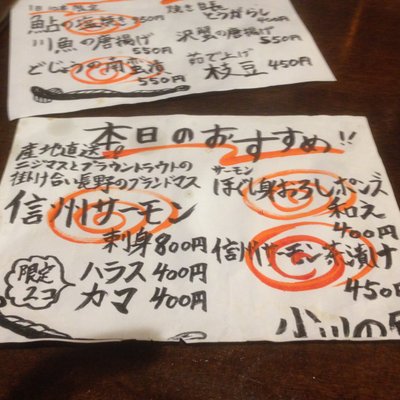 1日10本限定
鮎の塩焼き 850円
川魚の唐揚げ
550円
どじょうの南蛮漬
550円
焼き目長
とうがらし
沢蟹の唐揚げ
550円
茹で上げ
枝豆 450円
本日のおすすめ!!
産地直送!!
ニジマスとブラウントラウトの
掛け合い長野のブランドマス
信州サーモン
刺身 800円
限定
2コ
ハラス 400円
カマ 400円
サーモン
ほぐし身おろしポンズ
和え
400円
信州サーモン茶漬け
450円
小川の